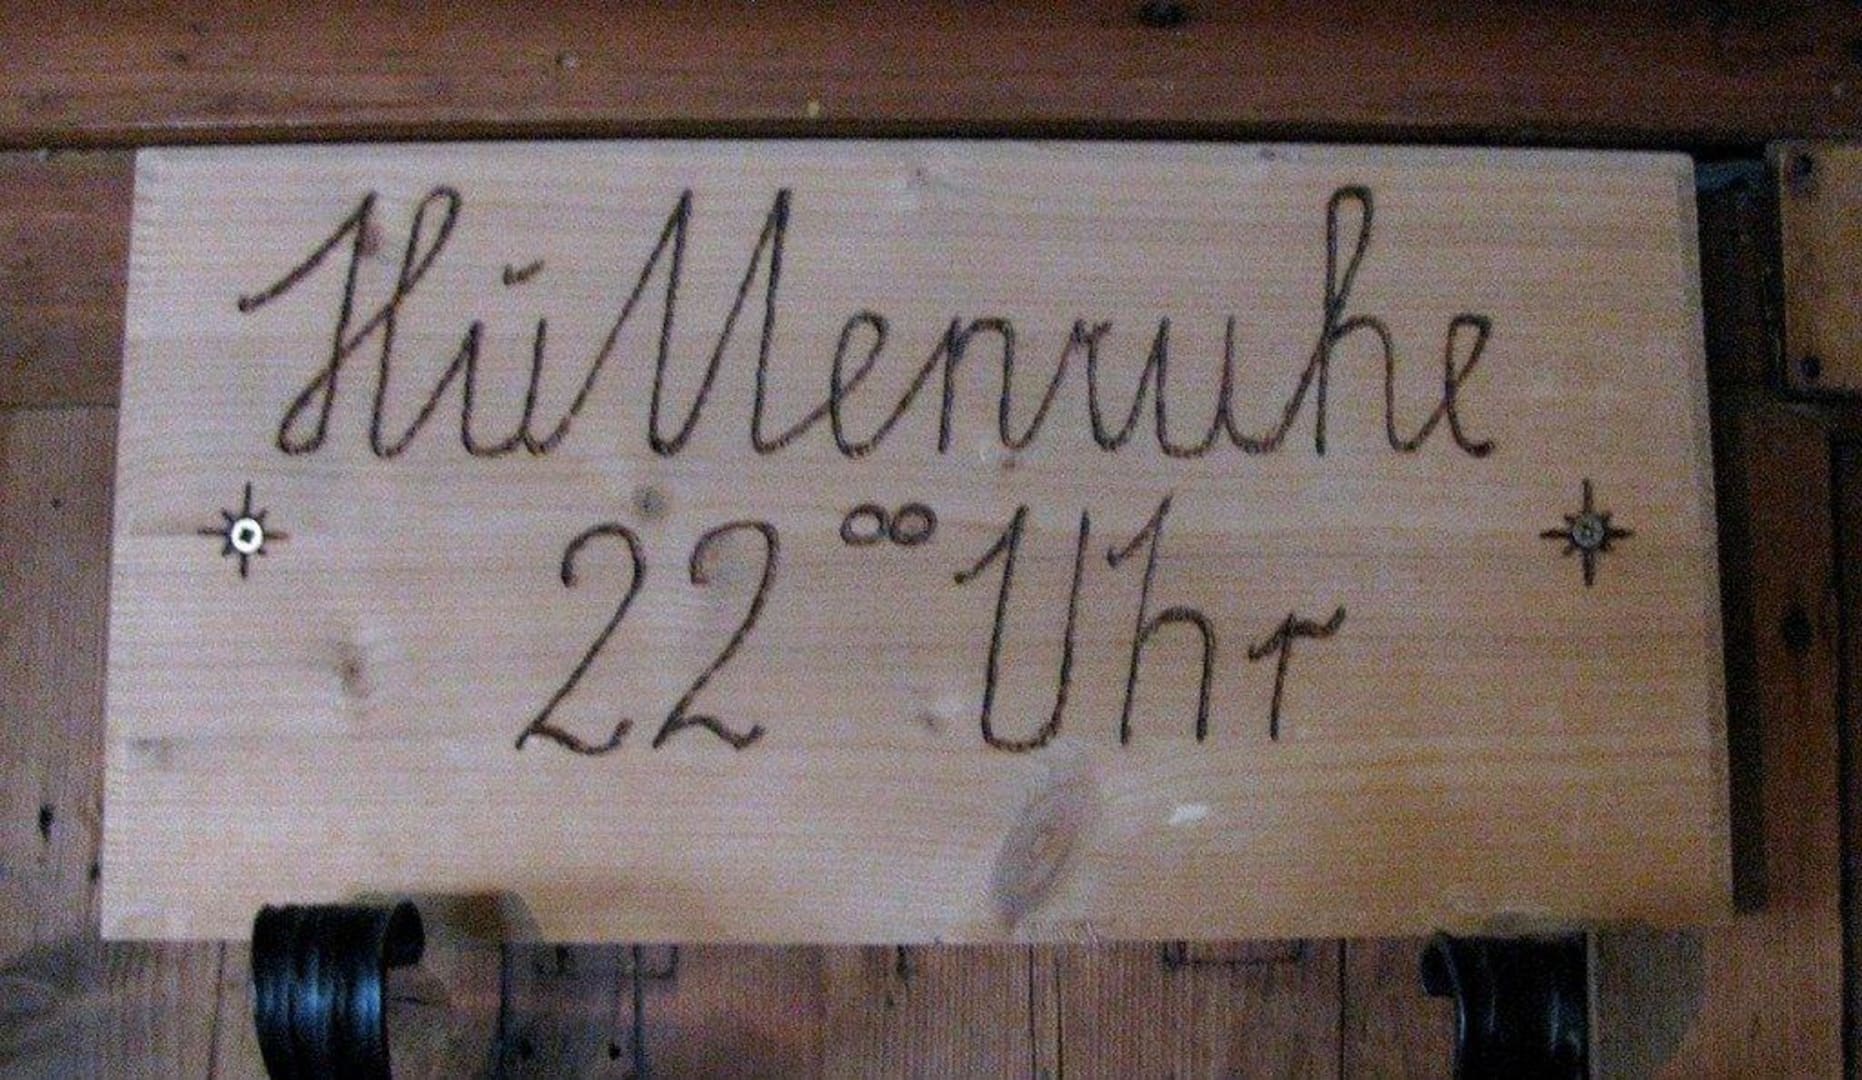 Hüttenruhe
22⁰⁰ Uhr